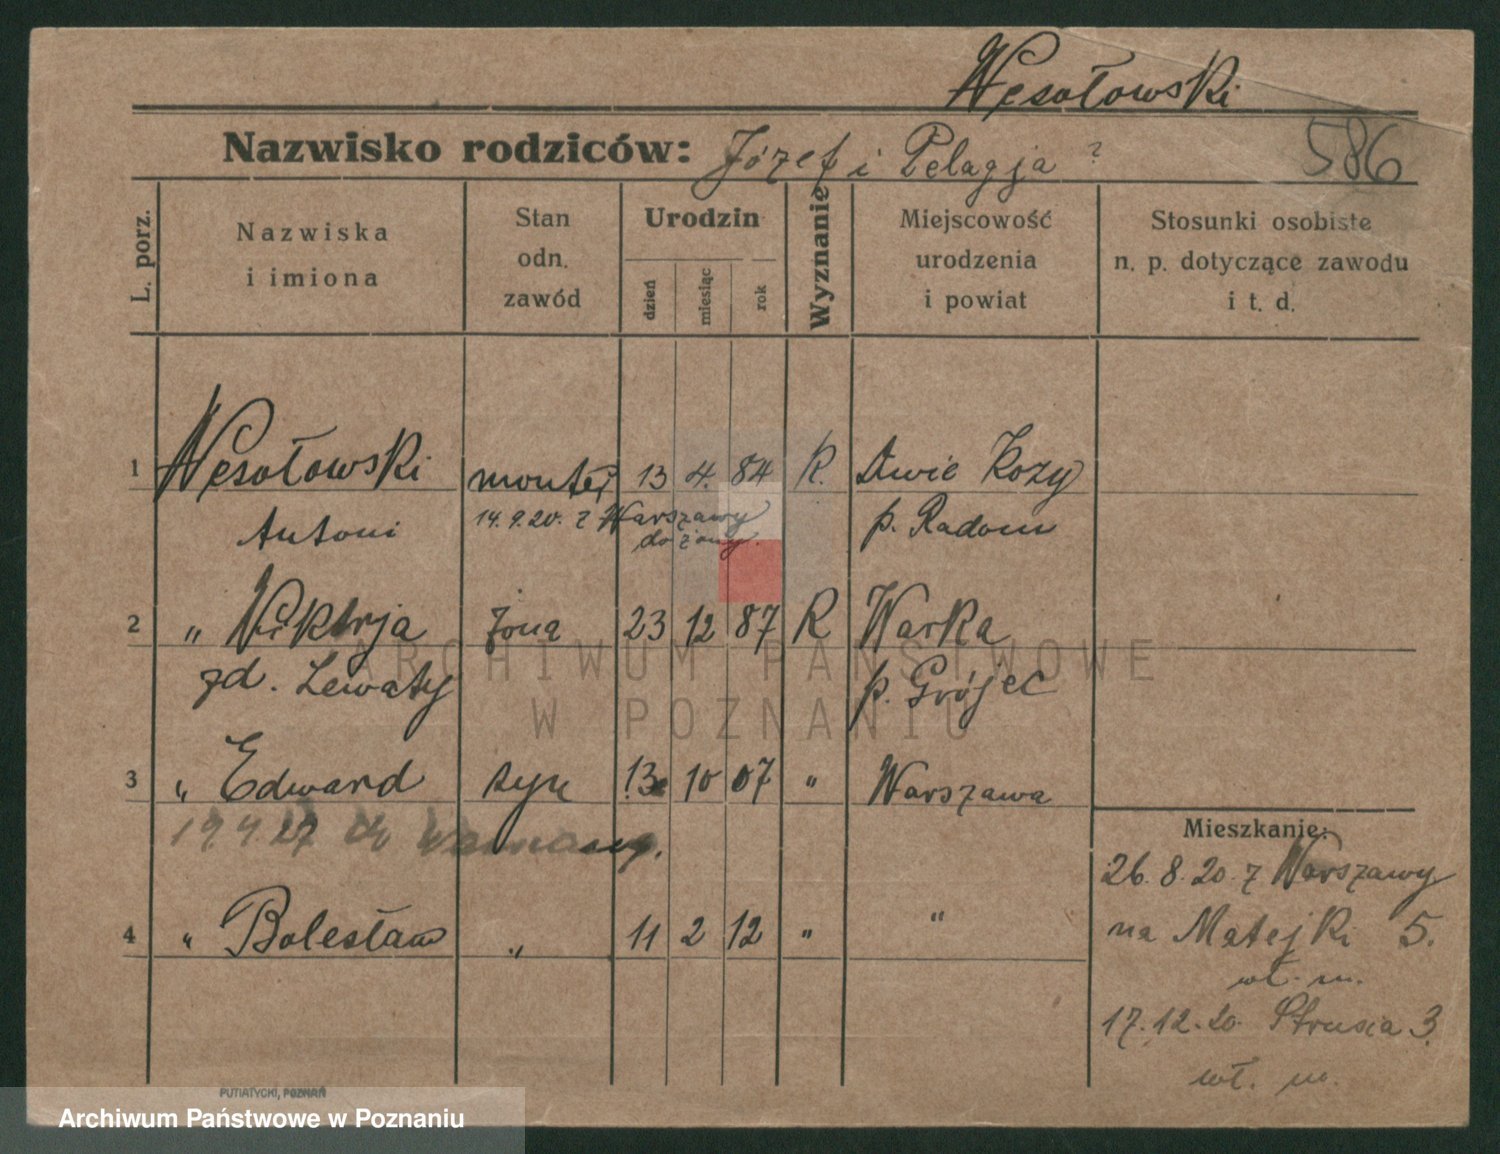 Wesołowski
Nazwisko rodziców: Józef i Pelagja ?
586
L. porz.
Nazwiska i imiona
Stan odn. zawód
Urodzin
dzień
miesiąc
rok
Wyznanie
Miejscowość urodzenia i powiat
Stosunki osobiste n. p. dotyczące zawodu i t. d.
1 Wesołowski monter 13 4. 84 R. Dwie Kozy
Antoni 14.9.20. z Warszawy p. Radom
do żony.
2 " Wiktorja żona 23 12 87 R Warka
zd. Lewaty p. Grójec
3 " Edward syn 13 10 07 " Warszawa
19 4.27 do
4 " Bolesław " 11 2 12 " "
Mieszkanie:
26.8.20. z Warszawy
na Matejki 5.
wł. m.
17.12.20. Strusia 3.
wł. m.
PUTIATYCKI, POZNAŃ
ARCHIWUM PAŃSTWOWE
W POZNANIU
Archiwum Państwowe w Poznaniu